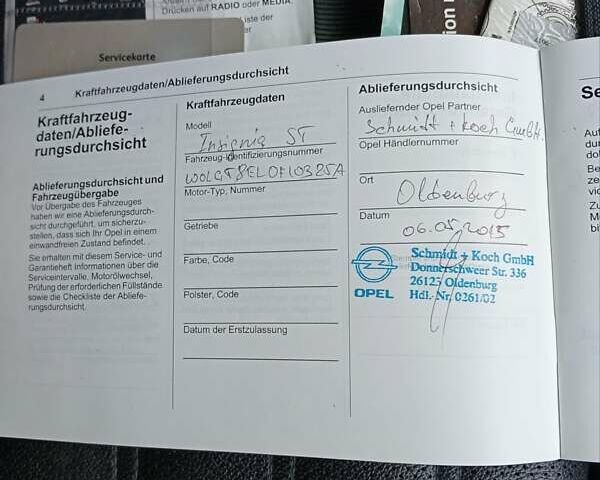 Drücken auf RADIO oder MEDIA.
iste der
er
Servicekarte
4 Kraftfahrzeugdaten/Ablieferungsdurchsicht
Kraftfahrzeug-
daten/Abliefe-
rungsdurchsicht
Ablieferungsdurchsicht und
Fahrzeugübergabe
Vor Übergabe des Fahrzeuges
haben wir eine Ablieferungsdurch-
sicht durchgeführt, um sicherzu-
stellen, dass sich Ihr Opel in einem
einwandfreien Zustand befindet.
Sie erhalten mit diesem Service- und
Garantieheft Informationen über die
Serviceintervalle, Motorölwechsel,
Prüfung der erforderlichen Füllstände
sowie die Checkliste der Abliefe-
rungsdurchsicht.
Kraftfahrzeugdaten
Modell
Insignia ST
Fahrzeug-Identifizierungsnummer
Motor-Typ, Nummer
Getriebe
Farbe, Code
Polster, Code
Datum der Erstzulassung
Ablieferungsdurchsicht
Ausliefernder Opel Partner
Schmidt + Koch GmbH.
Opel Händlernummer
Ort
Oldenburg
Datum
06.05.2015
Schmidt + Koch GmbH
Donnerschweer Str. 336
26123 Oldenburg
Hdl.-Nr. 0261/02
OPEL
Se